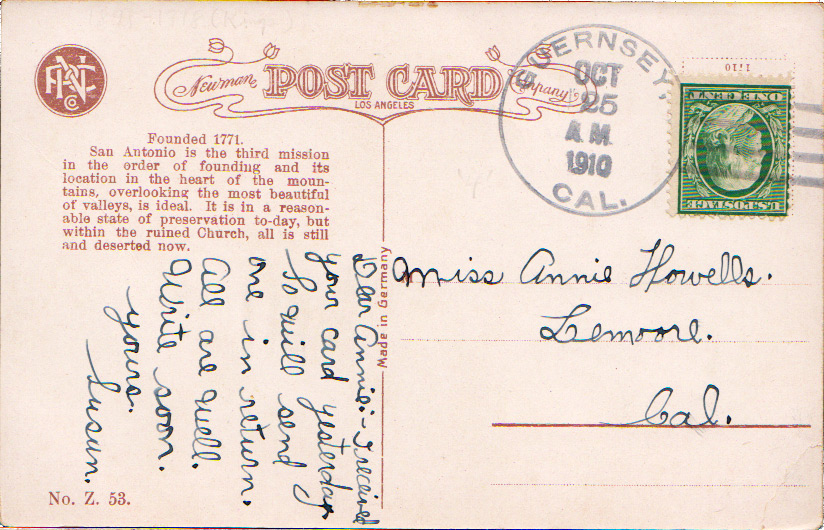 Newman POST CARD Company
LOS ANGELES
Founded 1771.
San Antonio is the third mission
in the order of founding and its
location in the heart of the moun-
tains, overlooking the most beautiful
of valleys, is ideal. It is in a reason-
able state of preservation to-day, but
within the ruined Church, all is still
and deserted now.
Dear Annie:- I received
your card yesterday.
So will send
one in return.
All are well.
Write soon.
yours.
Susan.
No. Z. 53.
Made in Germany
GUERNSEY,
OCT
25
A.M.
1910
CAL.
U.S. POSTAGE
ONE CENT
Miss Annie Howells.
Lemoore.
Cal.